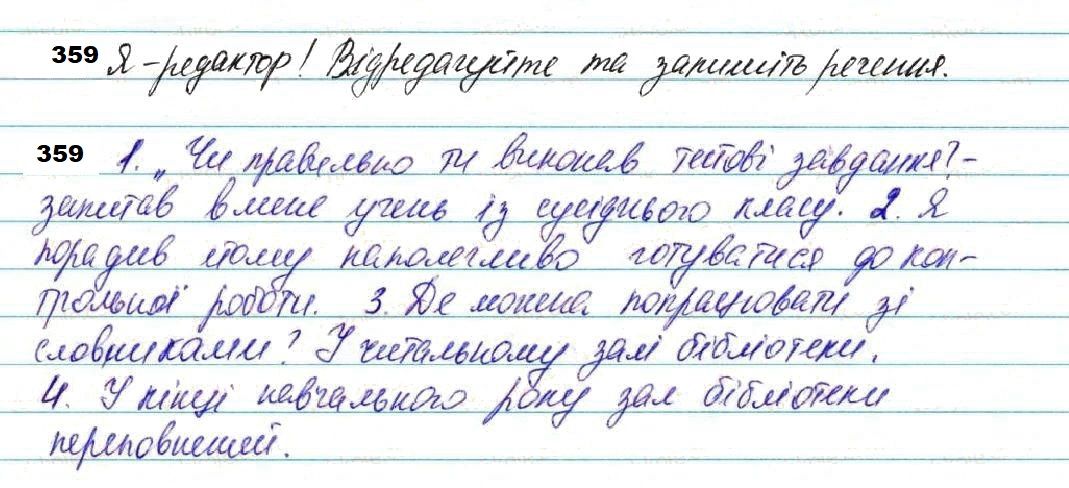 359 Я - редактор! Відредагуйте та запишіть речення.
359 1. „Чи правильно ти виконав тестові завдання? -
запитав в мене учень із сусіднього класу. 2. Я
порадив йому наполегливо готуватися до кон-
трольної роботи. 3. Де можна попрацювати зі
словниками? У читальному залі бібліотеки.
4. У кінці навчального року зал бібліотеки
переповнений.